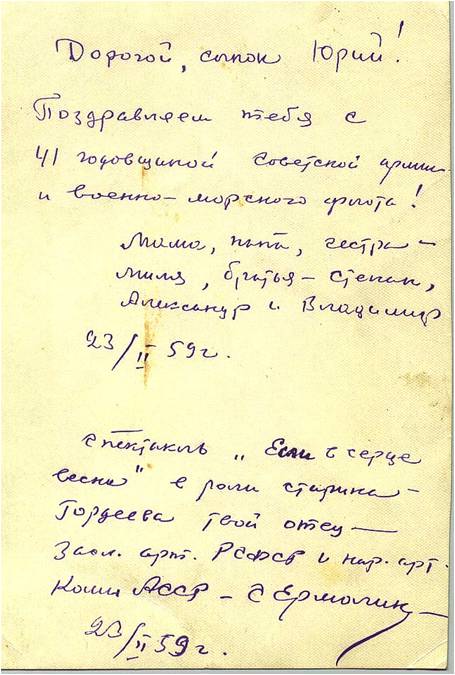 Дорогой, сынок Юрий!
Поздравляем тебя с
41 годовщиной советской армии
и военно-морского флота!
Мама, папа, сестра –
Миля, братья – Степан,
Александр и Владимир
23/II 59 г.
Спектакль „Если в серце
весна" в роли старика –
Гордеева твой отец –
Засл. арт. РСФСР и нар. арт.
Коми АССР – С Ермолин
23/II 59 г.